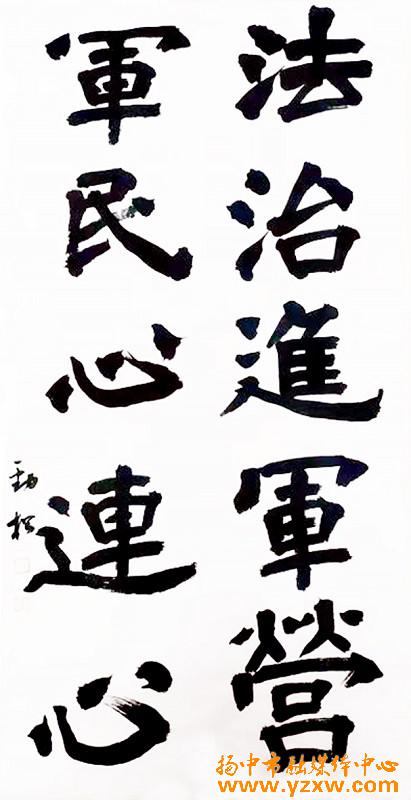 法治進軍營
軍民心連心
勁松
扬中市融媒体中心
www.yzxw.com